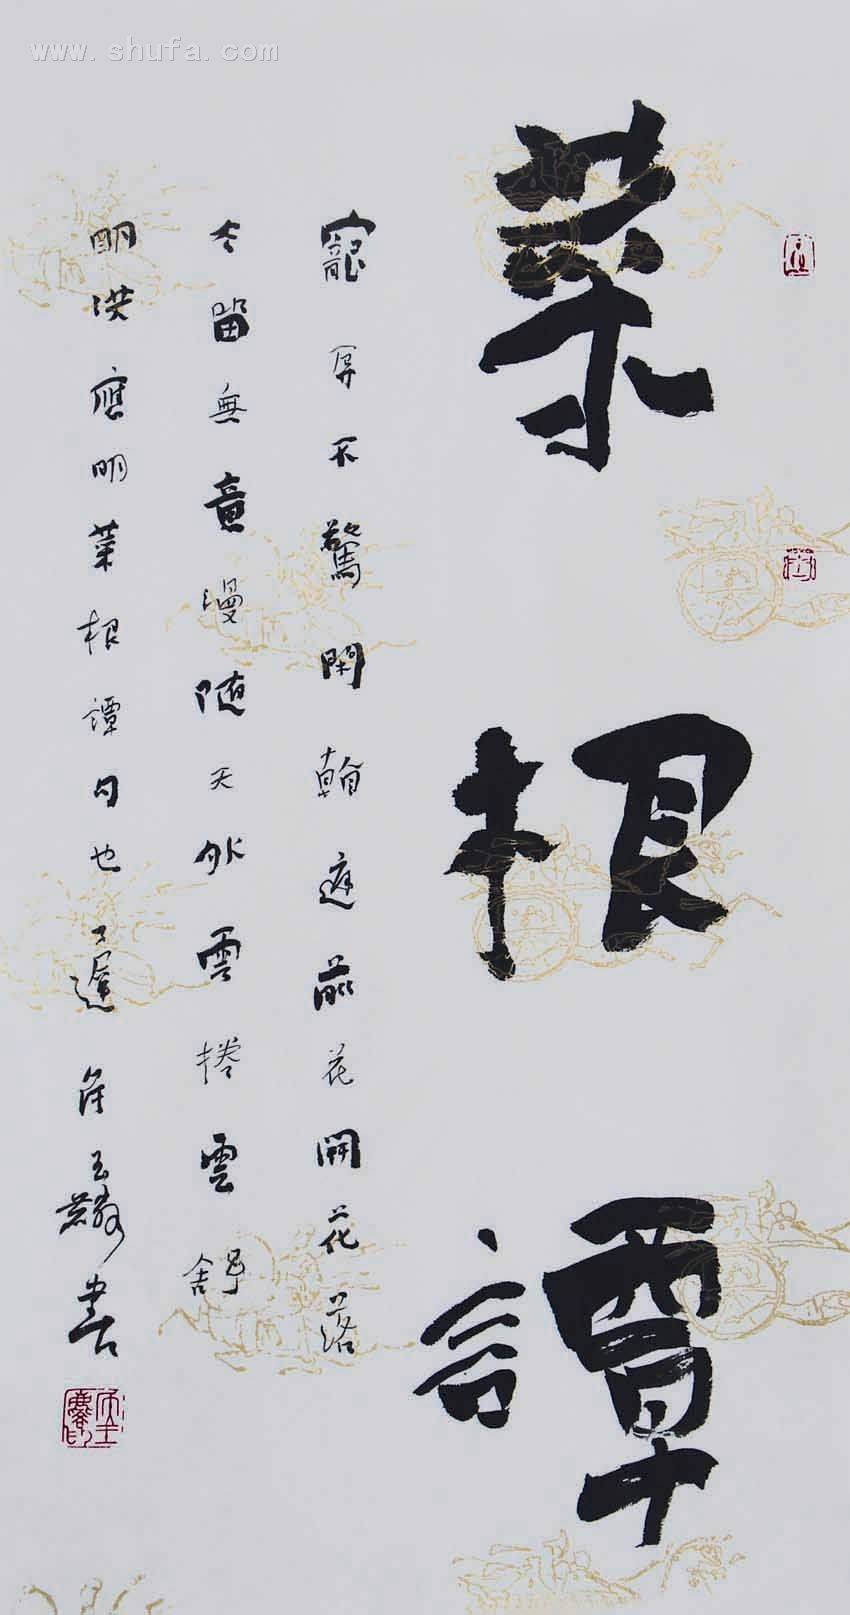 www.shufa.com
菜根譚
寵辱不驚閑看庭前花開花落
去留無意漫随天外雲捲雲舒
明洪應明菜根譚句也侯玉麟書